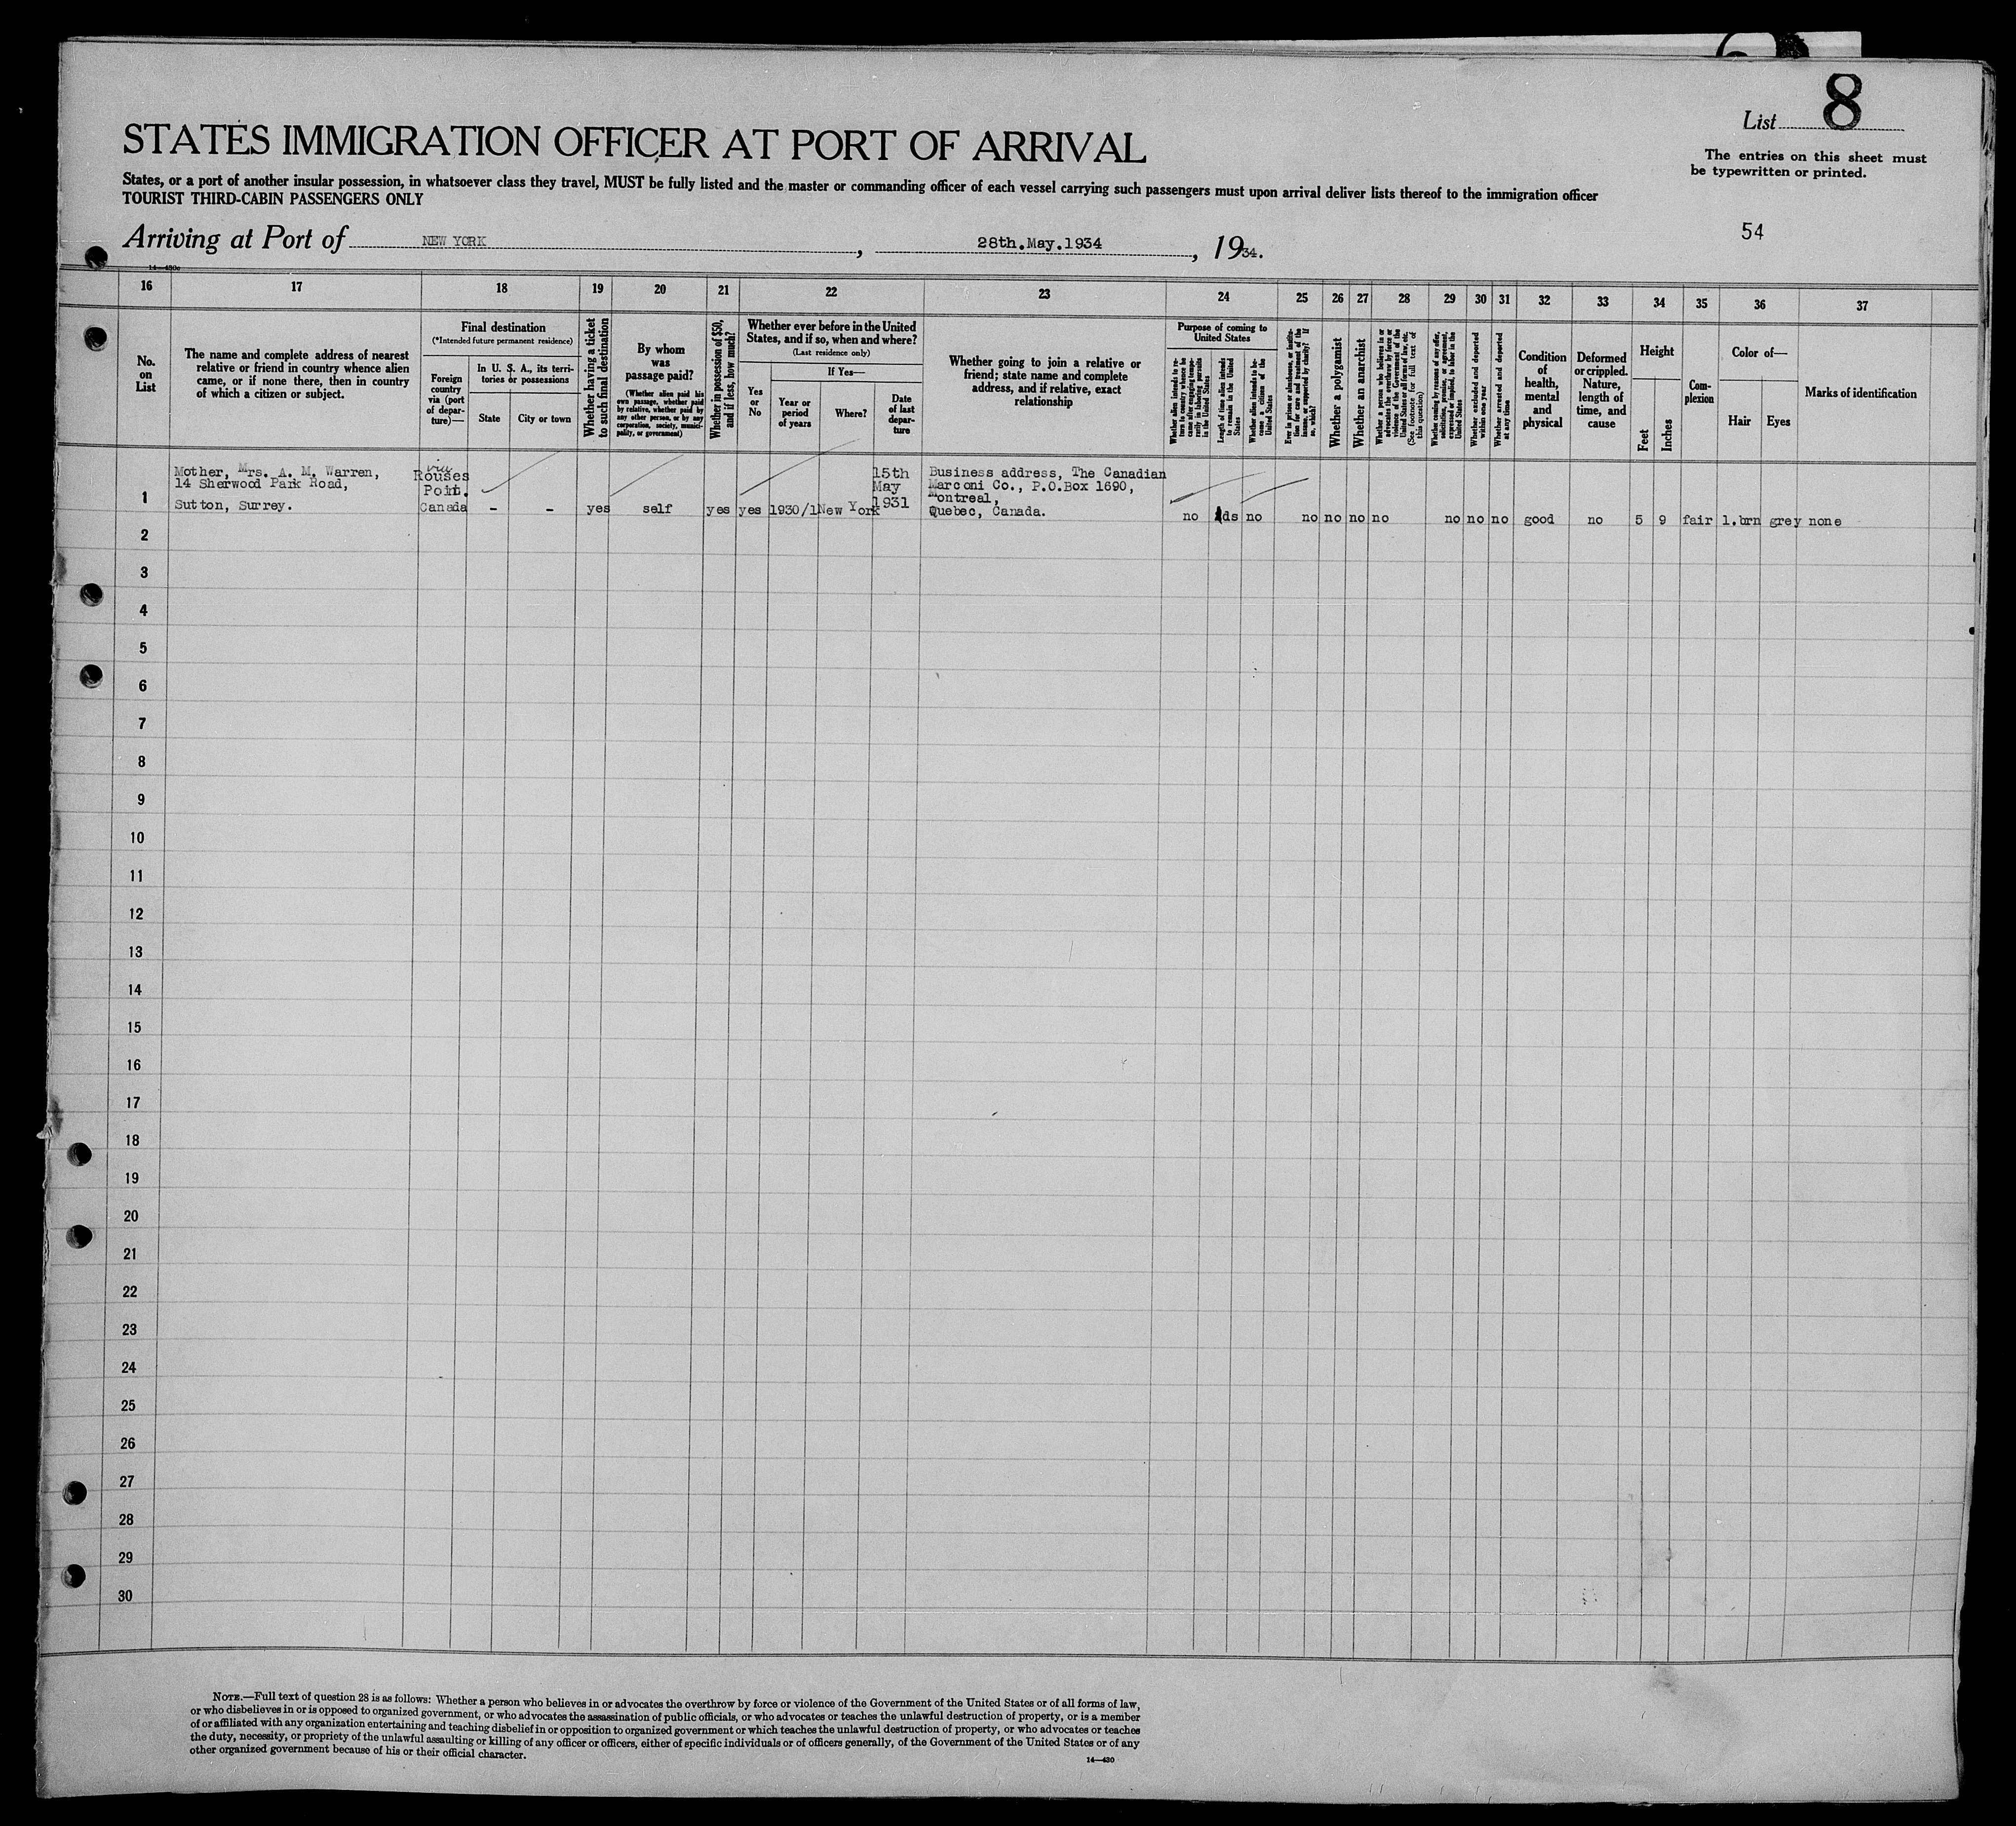 List 8
The entries on this sheet must
be typewritten or printed.
STATES IMMIGRATION OFFICER AT PORT OF ARRIVAL
States, or a port of another insular possession, in whatsoever class they travel, MUST be fully listed and the master or commanding officer of each vessel carrying such passengers must upon arrival deliver lists thereof to the immigration officer
TOURIST THIRD-CABIN PASSENGERS ONLY
54
Arriving at Port of NEW YORK, 28th.May.1934, 1934.
16 17 18 19 20 21 22 23 24 25 26 27 28 29 30 31 32 33 34 35 36 37
No.
on
List
The name and complete address of nearest
relative or friend in country whence alien
came, or if none there, then in country
of which a citizen or subject.
Final destination
(*Intended future permanent residence)
Foreign
country
via (port
of depar-
ture)—
In U. S. A., its terri-
tories or possessions
State
City or town
Whether having a ticket
to such final destination
By whom
was
passage paid?
(Whether alien paid his
own passage, whether paid
by relative, whether paid by
any other person, or by any
corporation, society, munici-
pality, or government)
Whether in possession of $50,
and if less, how much?
Whether ever before in the United
States, and if so, when and where?
(Last residence only)
Yes
or
No
If Yes—
Year or
period
of years
Where?
Date
of last
depar-
ture
Whether going to join a relative or
friend; state name and complete
address, and if relative, exact
relationship
Purpose of coming to
United States
Whether alien intends to re-
turn to country whence he
came after engaging tempo-
rarily in laboring pursuits
in the United States
Length of time alien intends
to remain in the United
States
Whether alien intends to be-
come a citizen of the
United States
Ever in prison or almshouse, or institu-
tion for care and treatment of the
insane, or supported by charity? If
so, which?
Whether a polygamist
Whether an anarchist
Whether a person who believes in or
advocates the overthrow by force or
violence of the Government of the
United States or all forms of law, etc.
(See footnote for full text of
this question)
Whether coming by reasons of any offer,
solicitation, promise, or agreement,
expressed or implied, to labor in the
United States
Whether excluded and deported
within one year
Whether arrested and deported
at any time
Condition
of
health,
mental
and
physical
Deformed
or crippled.
Nature,
length of
time, and
cause
Height
Feet
Inches
Com-
plexion
Color of—
Hair
Eyes
Marks of identification
1
Mother, Mrs. A. M. Warren,
14 Sherwood Park Road,
Sutton, Surrey.
via
Rouses
Point.
Canada
- - yes self yes yes 1930/1 New York
15th
May
1931
Business address, The Canadian
Marconi Co., P.O.Box 1690,
Montreal,
Quebec, Canada.
no ds no no no no no no no no good no 5 9 fair l.brn grey none
2
3
4
5
6
7
8
9
10
11
12
13
14
15
16
17
18
19
20
21
22
23
24
25
26
27
28
29
30
NOTE.—Full text of question 28 is as follows: Whether a person who believes in or advocates the overthrow by force or violence of the Government of the United States or of all forms of law,
or who disbelieves in or is opposed to organized government, or who advocates the assassination of public officials, or who advocates or teaches the unlawful destruction of property, or is a member
of or affiliated with any organization entertaining and teaching disbelief in or opposition to organized government or which teaches the unlawful destruction of property, or who advocates or teaches
the duty, necessity, or propriety of the unlawful assaulting or killing of any officer or officers, either of specific individuals or of officers generally, of the Government of the United States or of any
other organized government because of his or their official character.
14—430